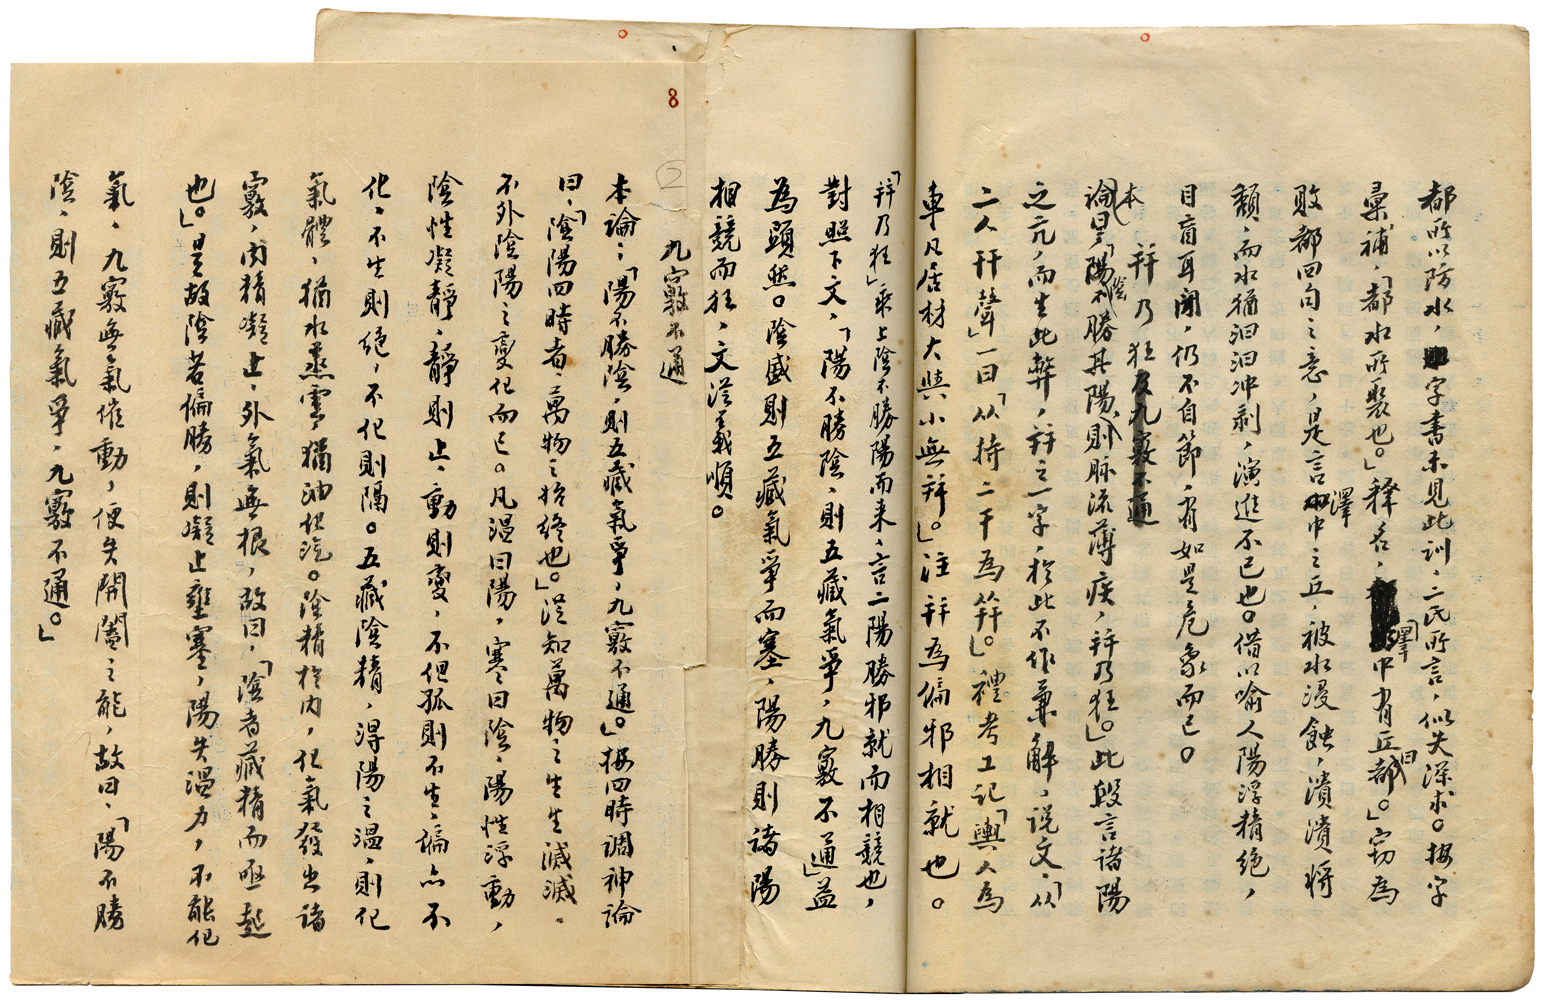 都所以防水，字書未見此訓，二氏所言，似失深求。按字
彙補，「都水所聚也。」釋名，「澤中有丘曰都。」窃為
敗都四句之意，是言澤中之丘，被水浸蝕，潰潰將
頹，而水猶汩汩冲剥，演進不已也。借以喻人陽浮精絕，
目盲耳閉，仍不自節，有如是危象而已。
本 䍬乃狂及九竅不通
論曰，「陰不勝其陽，則脉流薄疾，䍬乃狂。」此段言諸陽
之亢，而生此弊，䍬之一字，於此不作兼解，說文，「从
二人幵聲」一曰「从持二干為䍬。」禮考工記「輿人為
車凡居材大與小無䍬。」注䍬為偏邪相就也。
「䍬乃狂」乘上陰不勝陽而来，言二陽勝邪就而相競也，
對照下文，「陽不勝陰，則五藏氣爭，九竅不通」益
為顕然。陰盛則五藏氣爭而塞，陽勝則諸陽
相競而狂，文從義順。
8
②
九竅不通
本論：「陽不勝陰，則五藏氣爭，九竅不通。」按四時調神論
曰，「陰陽四時者，萬物之始終也。」從知萬物之生生滅滅。
不外陰陽之變化而已。凡温曰陽，寒曰陰，陽性浮動，
陰性凝靜，靜則止，動則變，不但孤則不生，偏亦不
化，不生則絕，不化則隔。五藏陰精，得陽之温，則化
氣體，猶水蒸雲，猶油起汽。陰精於內，化氣發出諸
竅，內精凝止，外氣無根，故曰，「陰者藏精而亟起
也。」是故陰若偏勝，則凝止壅塞，陽失温力，不能化
氣，九竅無氣催動，便失開闔之能，故曰，「陽不勝
陰，則五藏氣爭，九竅不通。」